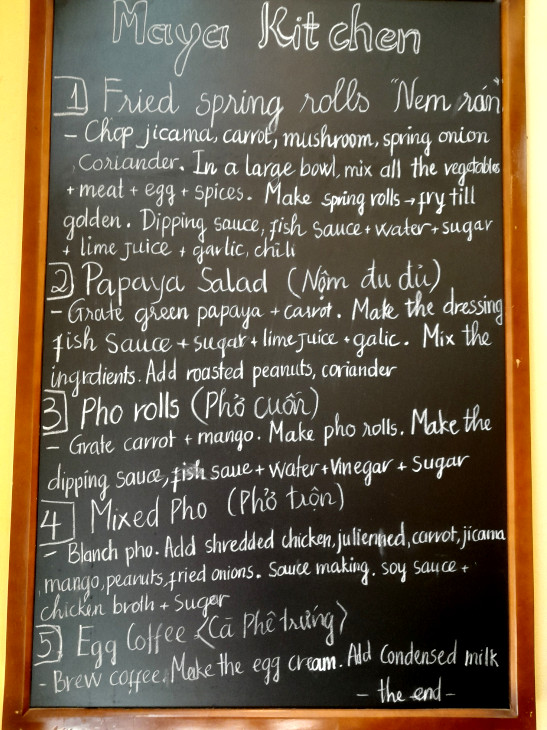 Maya Kitchen
1 Fried spring rolls "Nem rán"
- Chop jicama, carrot, mushroom, spring onion
, Coriander. In a large bowl, mix all the vegetables
+ meat + egg + spices. Make spring rolls → fry till
golden. Dipping sauce, fish sauce + water + sugar
+ lime juice + garlic, chili
2 Papaya Salad (Nộm đu đủ)
- Grate green papaya + carrot. Make the dressing
fish sauce + sugar + lime juice + galic. Mix the
ingrdients. Add roasted peanuts, coriander
3 Pho rolls (Phở cuốn)
- Grate carrot + mango. Make pho rolls. Make the
dipping sauce, fish saue + water + vinegar + sugar
4 Mixed Pho (Phở trộn)
- Blanch pho. Add shredded chicken, julienned, carrot, jicama
, mango, peanuts, fried onions. Sauce making. soy sauce +
chicken broth + Suger
5 Egg Coffee <Cà Phê trứng>
- Brew coffee. Make the egg cream. Add Condensed milk
- the end -